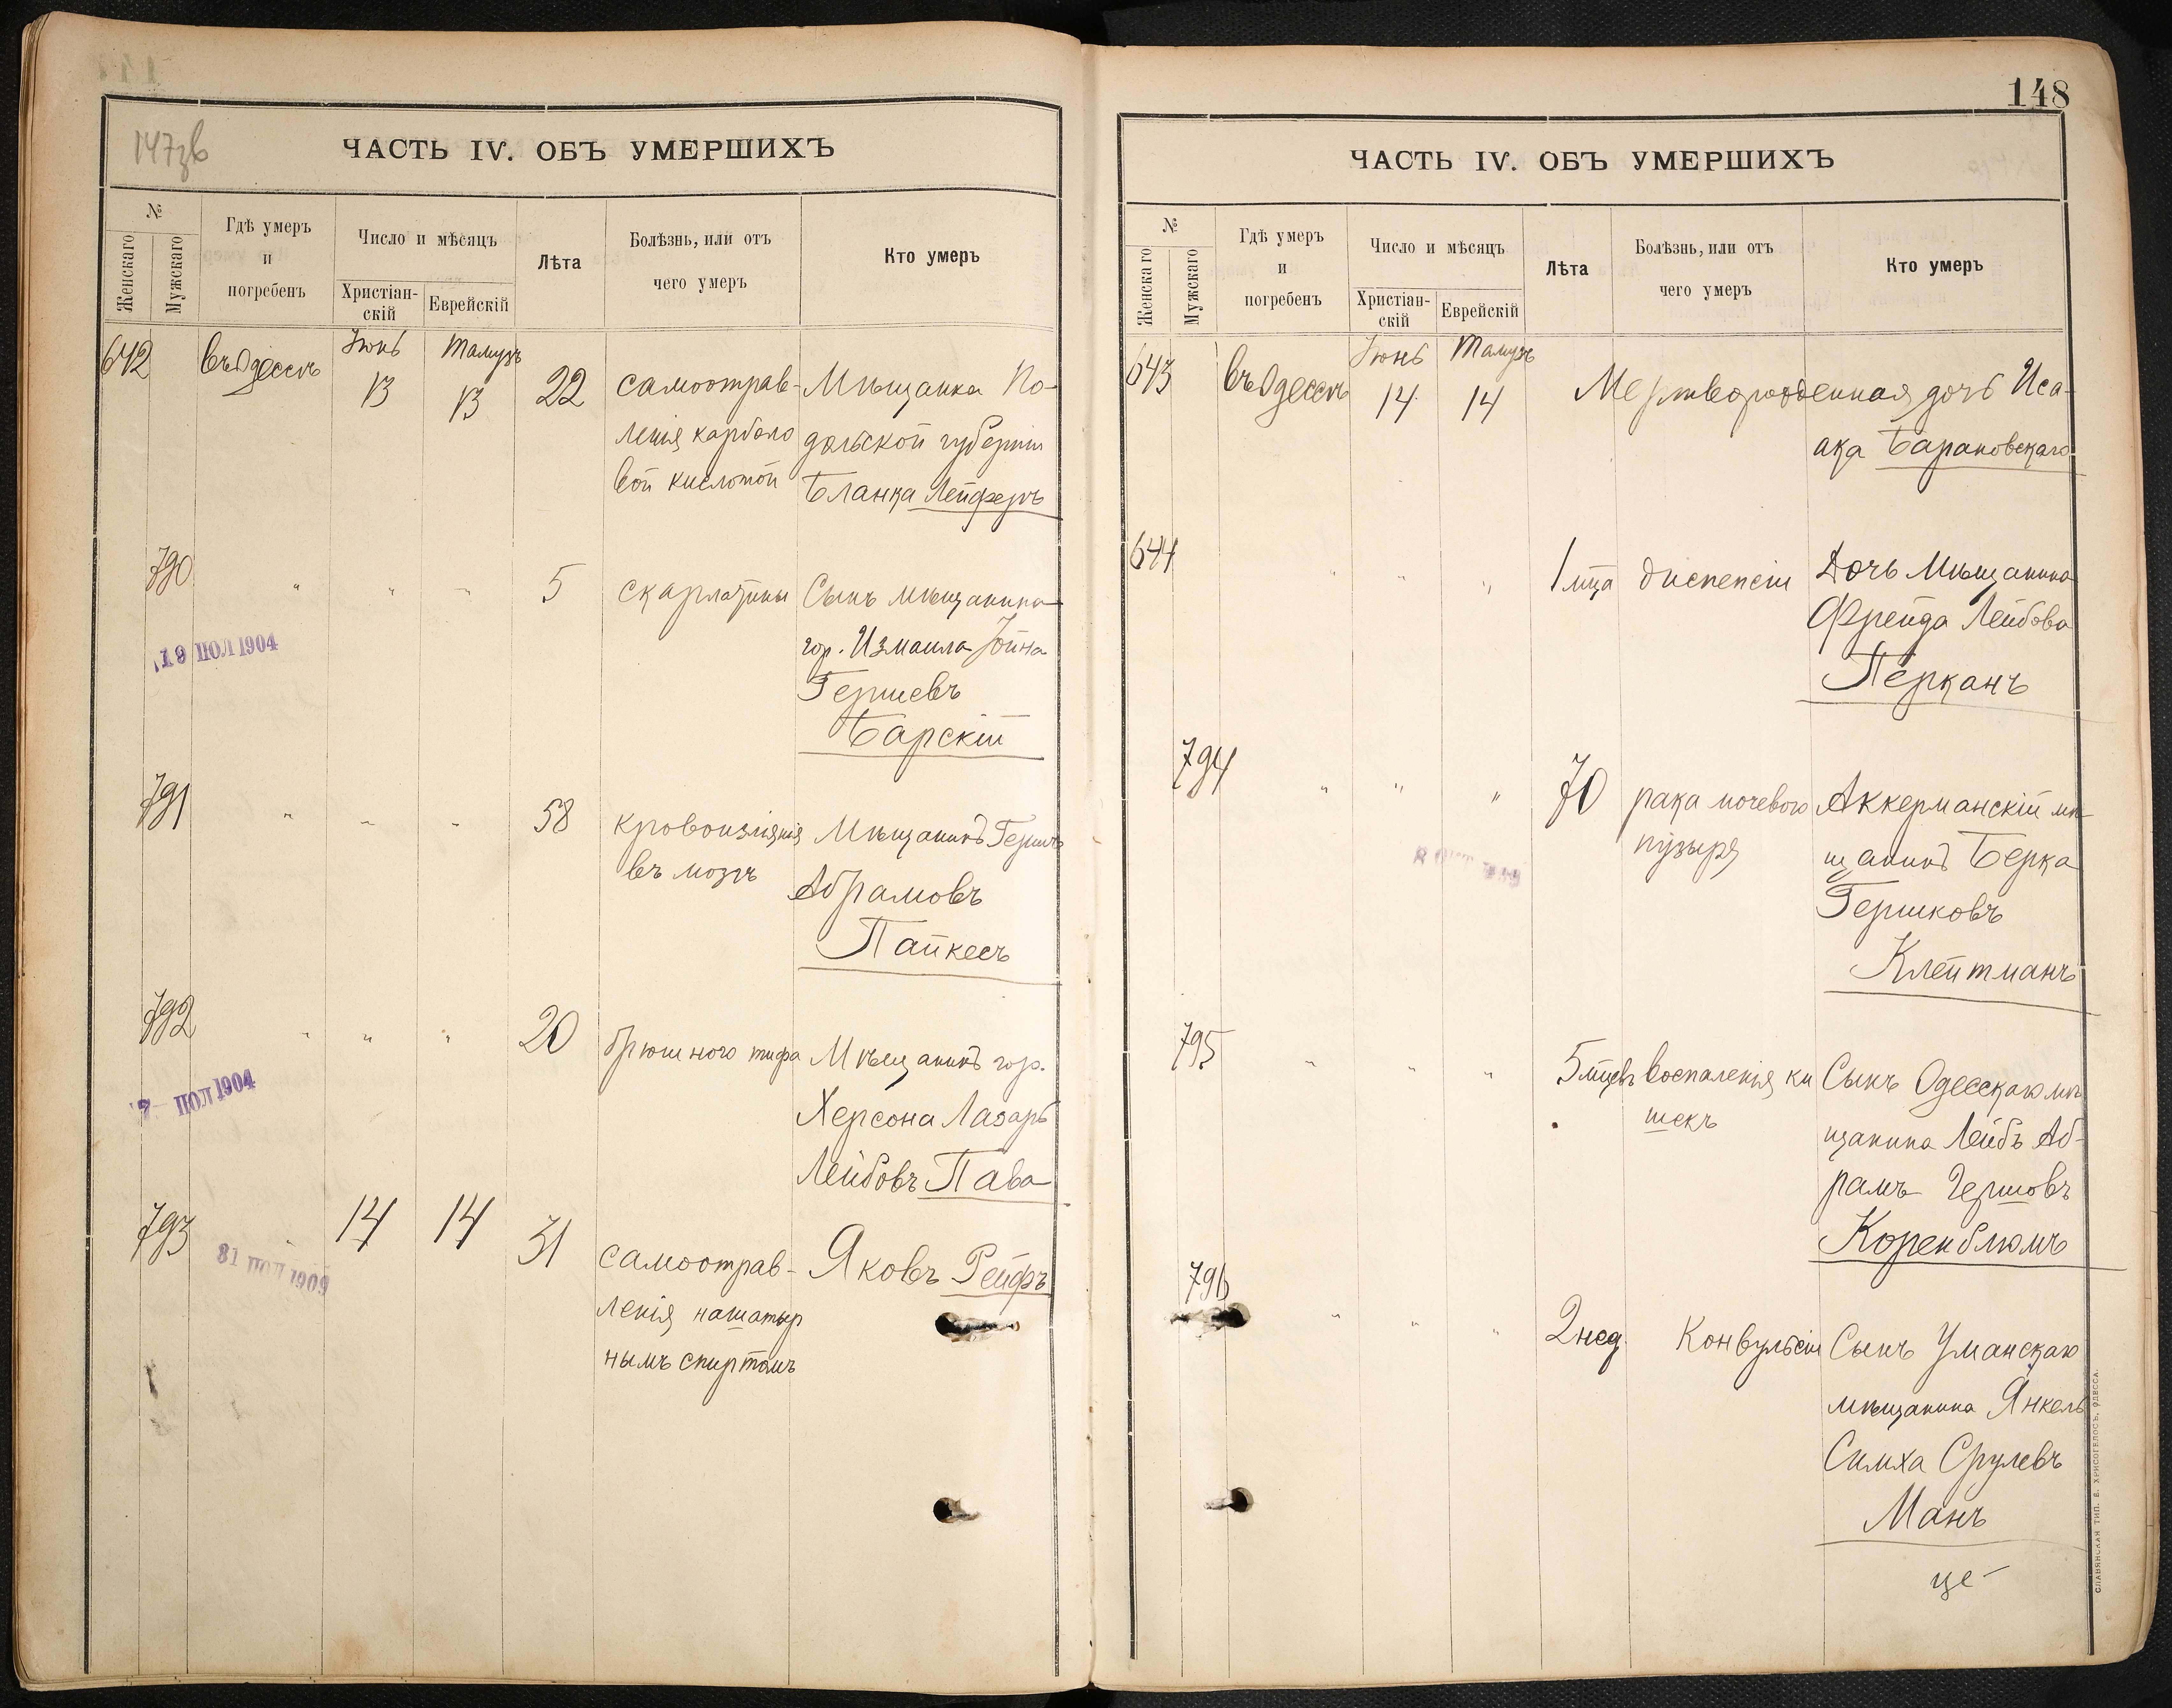 147зв
ЧАСТЬ IV. ОБЪ УМЕРШИХЪ
№
Женскаго
Мужскаго
Гдѣ умеръ
и
погребенъ
Число и мѣсяцъ
Христіан-
скій
Еврейскій
Лѣта
Болѣзнь, или отъ
чего умеръ
Кто умеръ
Іюнь Тамузъ
642 въ Одессѣ 13 13 22 самоотрав- Мѣщанка По-
ленія карболо дольской губерніи
вой кислотой Бланка Лейферъ
790 " " " 5 скарлатины Сынъ мѣщанина
гор. Измаила Іойна
19 ПОЛ 1904
Гершевъ
Барскій
791 " " " 58 кровоизліянія Мѣщанинъ Гершъ
въ мозгъ Абрамовъ
Папкесъ
792 " " " 20 брюшного тифа Мѣщанинъ гор.
ПОЛ 1904
Херсона Лазарь
Лейбовъ Пава
793 " 14 14 31 самоотрав- Яковъ Рейфъ
31 ПОЛ 1909
ленія нашатыр
нымъ спиртомъ
148
ЧАСТЬ IV. ОБЪ УМЕРШИХЪ
№
Женскаго
Мужскаго
Гдѣ умеръ
и
погребенъ
Число и мѣсяцъ
Христіан-
скій
Еврейскій
Лѣта
Болѣзнь, или отъ
чего умеръ
Кто умеръ
Іюнь Тамузъ
643 въ Одессѣ 14 14 Мертворожденная дочь Иса-
ака Барановскаго
644 " " " 1 мца диспепсіи Дочь Мѣщанина
Фрейда Лейбова
Перканъ
794 " " " 70 рака мочевого Аккерманскій мѣ-
пузыря щанинъ Берка
Гершковъ
Клейтманъ
795 " " " 5 мцевъ воспаленія ки Сынъ Одесскаго мѣ
шекъ щанина Лейбъ Аб-
рамъ Гершовъ
Коренблюмъ
796 " " " 2 нед. Конвульсіи Сынъ Уманскаго
мѣщанина Янкель
Симха Срулевъ
Манъ
це-
СЛАВЯНСКАЯ ТИП. Е. ХРИСОГЕЛОСЪ, ОДЕССА.